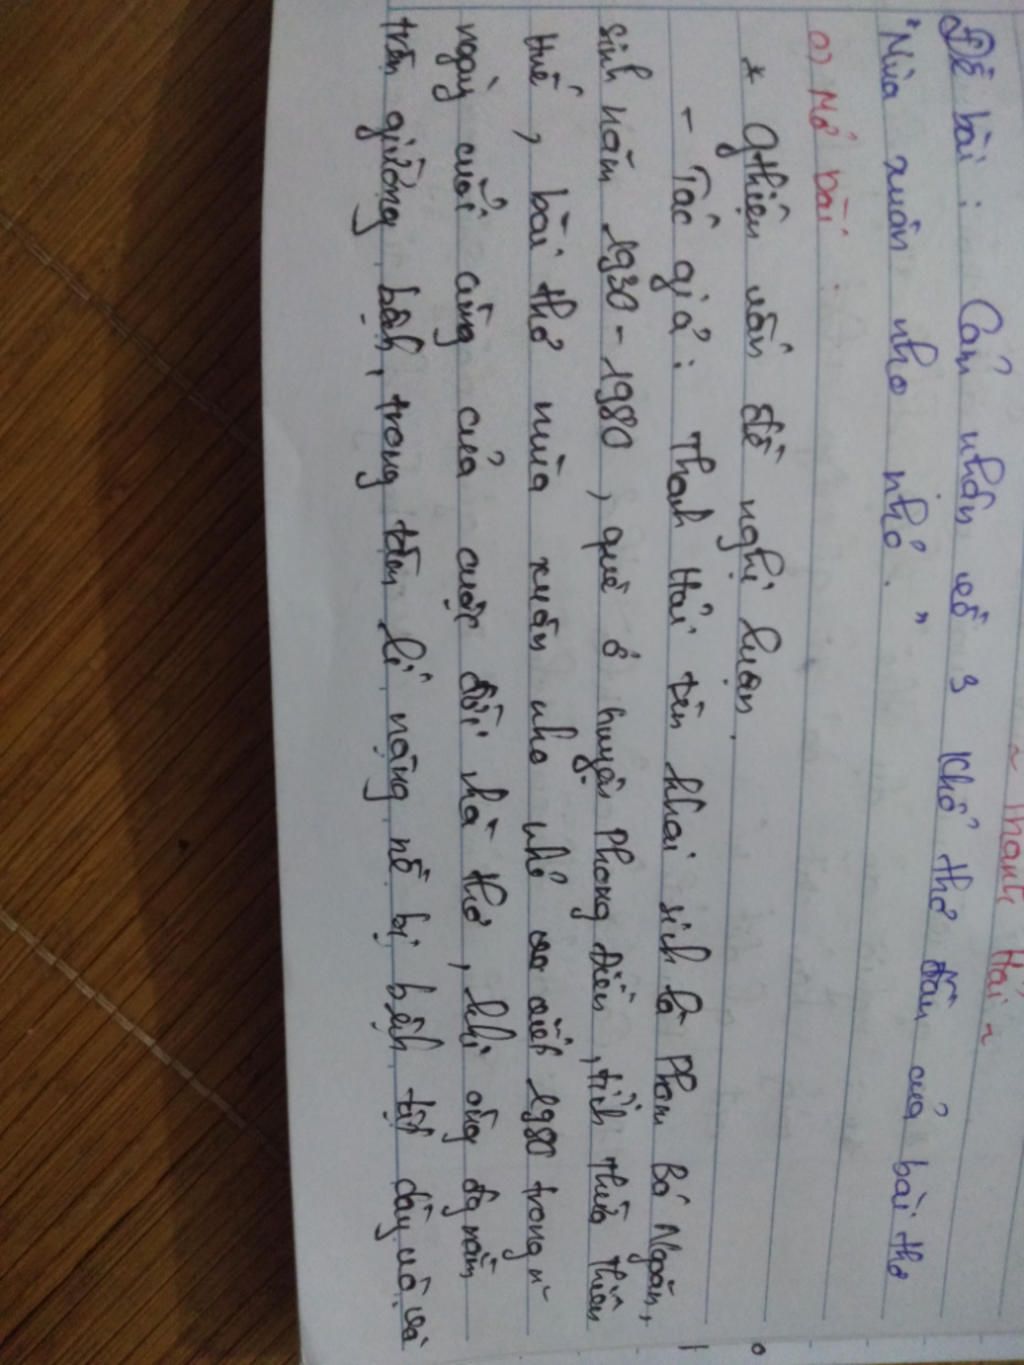 ~ Thanh Hải ~
Đề bài : Cảm nhân về 3 khổ thơ đầu của bài thơ
"Mùa xuân nho nhỏ . "
a) Mở bài :
* Gthiệu vấn đề nghị luận .
- Tác giả : Thanh Hải tên khai sinh là Phạm Bá Ngoãn,
sinh năm 1930 - 1980 , quê ở huyện Phong Điền , tỉnh Thừa Thiên
Huế , bài thơ mùa xuân nho nhỏ viết 1980 trong
ngày cuối cùng của cuộc đời nhà thơ , khi ông đg nằm
trên giường bệnh, trong tâm lí nặng nề bị bệnh tật dày vò và